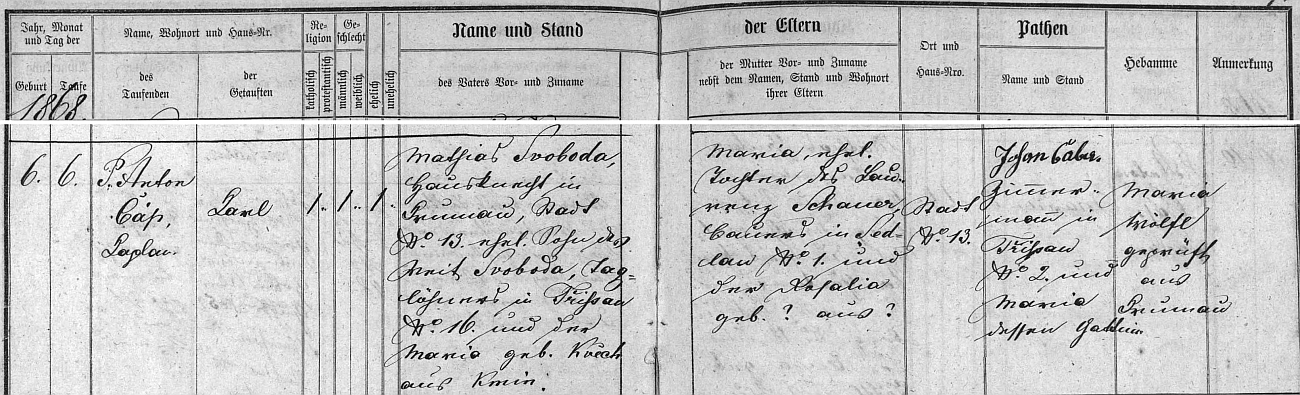 Jahr, Monat
und Tag der
Geburt
Taufe
Name, Wohnort und Haus-Nr.
des
Taufenden
der
Getauften
Re-
ligion
katholisch
protestantisch
Ge-
schlecht
männlich
weiblich
ehelich
unehelich
Name und Stand
des Vaters Vor- und Zuname
der Eltern
der Mutter Vor- und Zuname
nebst dem Namen, Stand und Wohnort
ihrer Eltern
Ort und
Haus-Nro.
Pathen
Name und Stand
Hebamme
Anmerkung
1868.
6.
6.
P. Anton
Čáp,
Kaplan.
Karl
1
1
1
Mathias Svoboda,
Hausknecht in
Krumau, Stadt
No. 13. ehel. Sohn des
Veit Svoboda, Tag=
löhners in Třissau
No. 16. und der
Maria geb. Kvěch
aus Kmin.
Maria, ehel.
Tochter des Lau-
renz Schauer,
Bauers in Sed-
lau No. 1. und
der Rosalia
geb. ? aus ?
Stadt
No. 13.
Johan
Zimer-
mañ in
Třissau
No. 2. und
Maria
dessen Gattin
Maria
Wölfl
geprüft
aus
Krumau